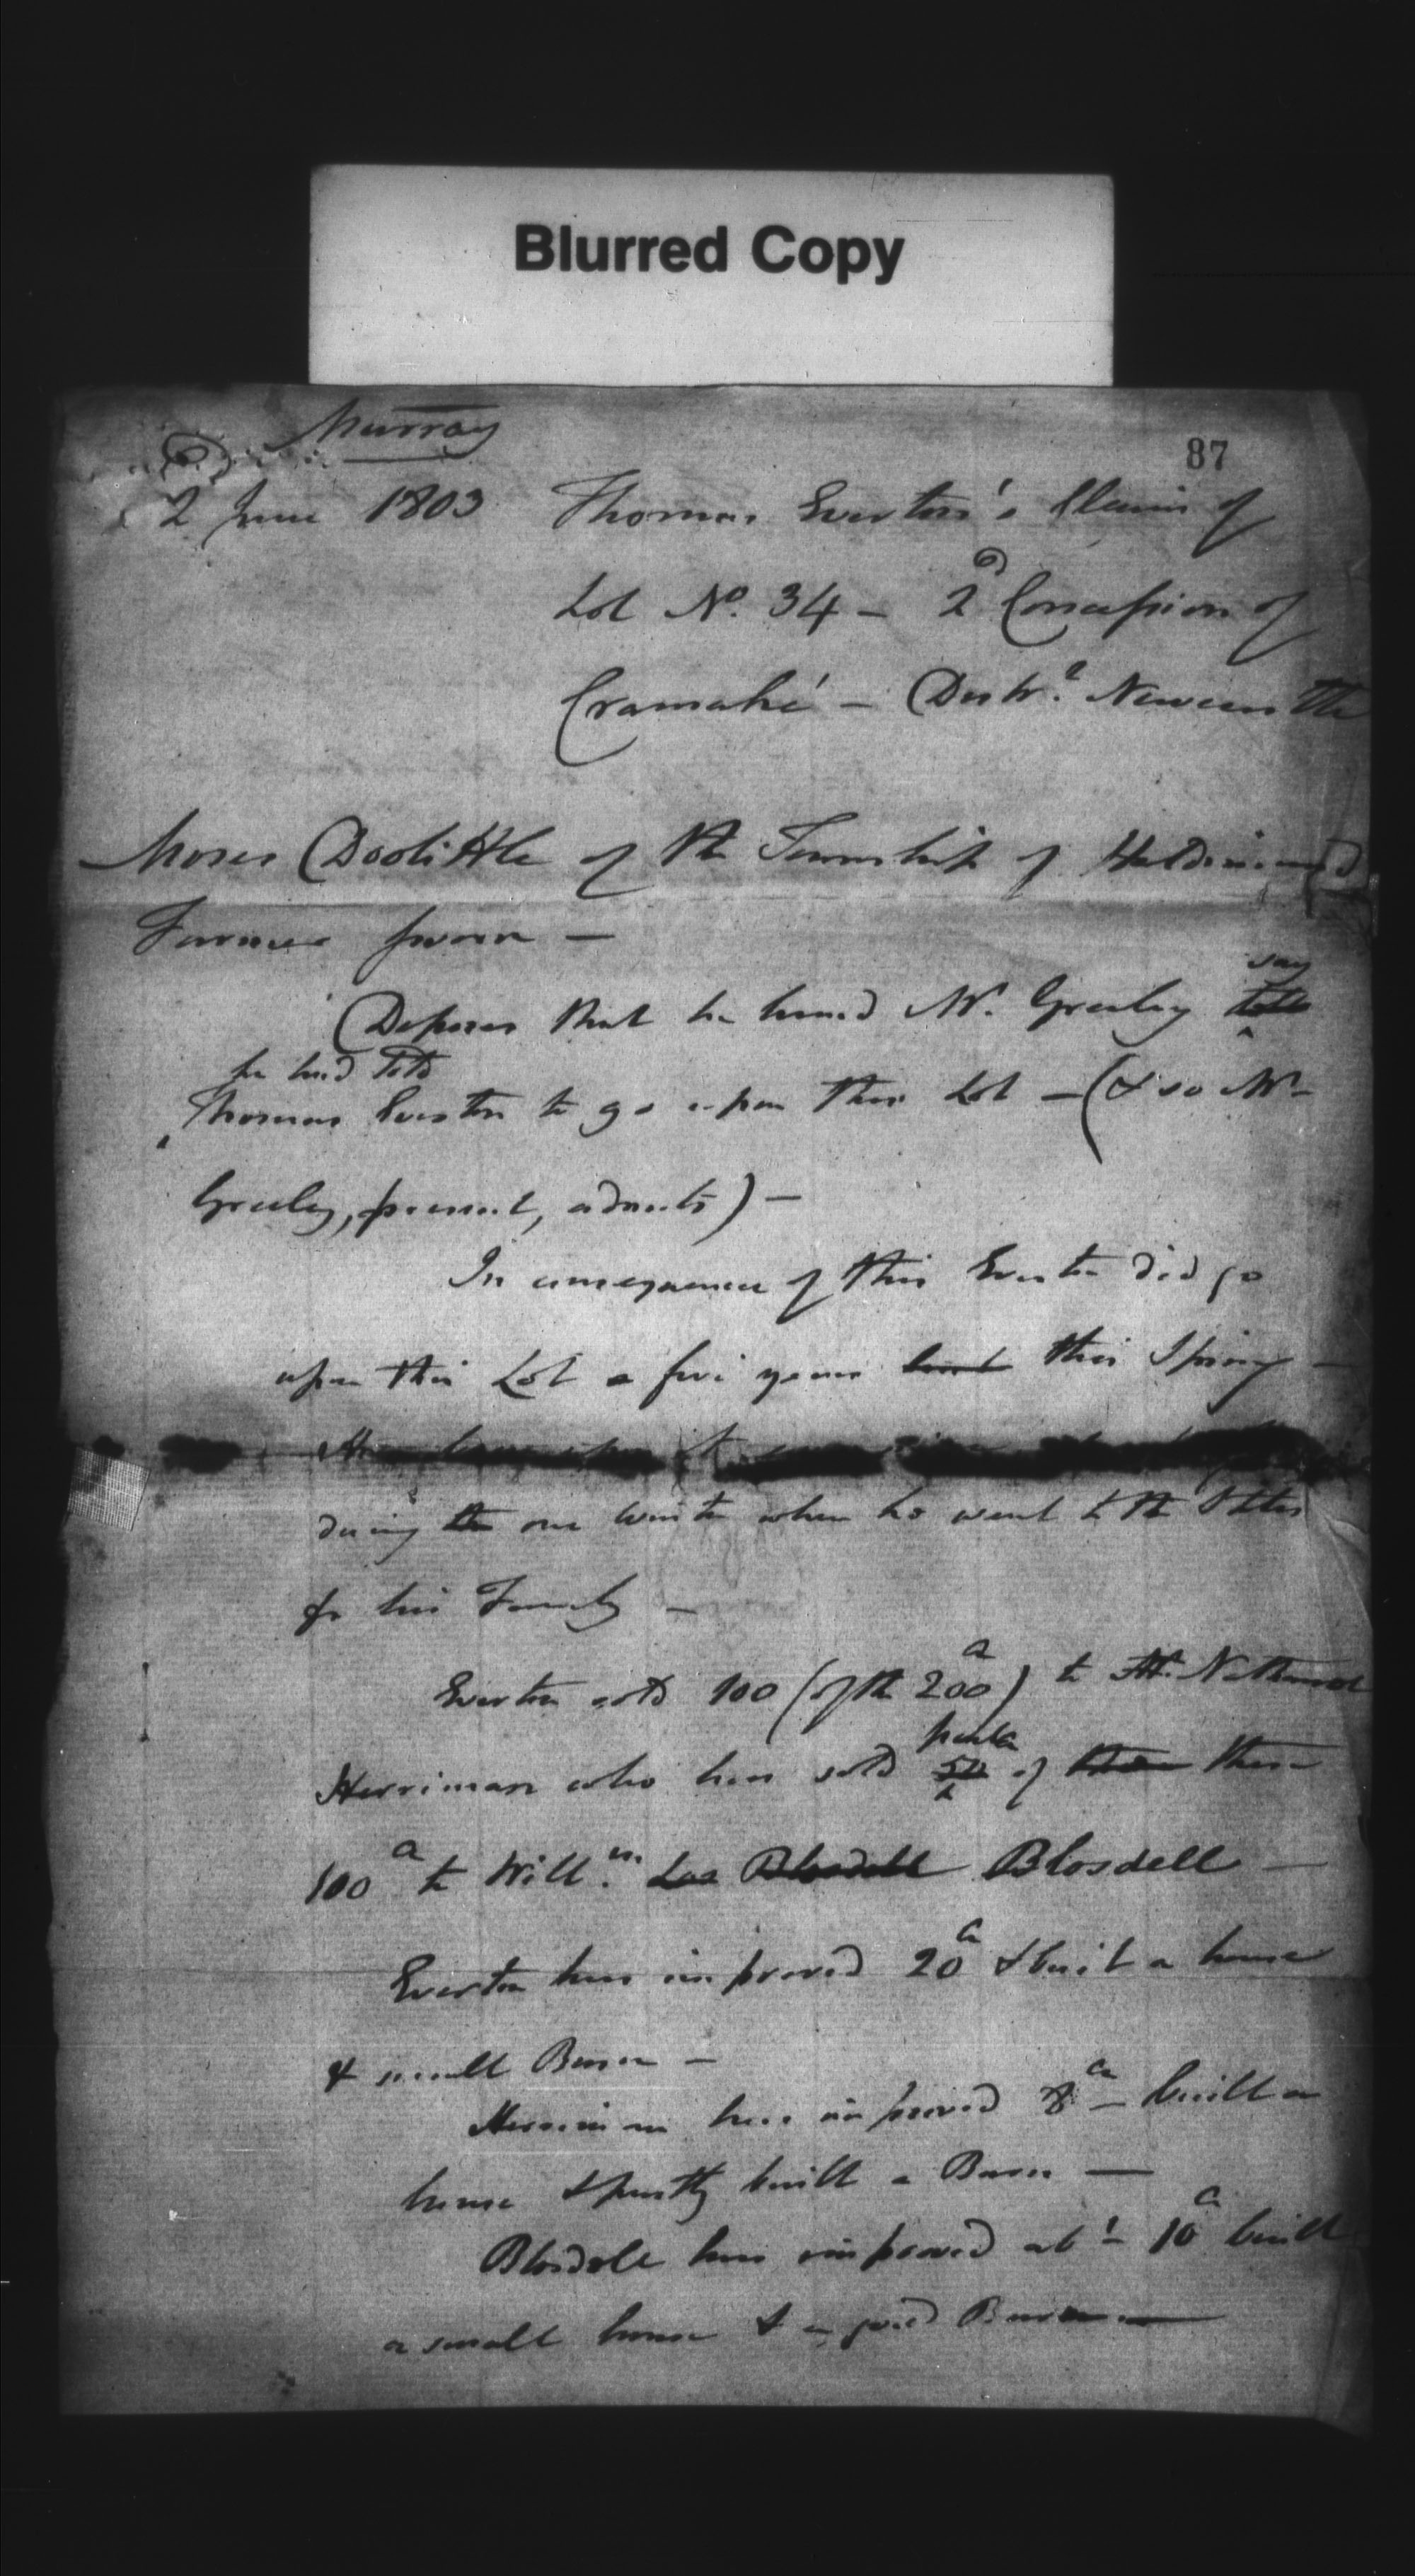 Blurred Copy
Murray
87
2 June 1803 Thomas Everton's Claim of
Lot No. 34 - 2d Concession of
Cramahé - Distr.t Newcastle
Moses Doolittle of the Township of Haldimand
Farmer sworn -
Deposes that he heard Mr. Greeley told say
he had told
Thomas Everton to go upon this Lot - (& so Mr.
Greeley, present, admits) -
In consequence of this Everton did go
upon this Lot a five years last this Spring -
during the one winter when he went to the States
for his Family -
Everton sold 100 (of the 200a) to Nathaniel
Herriman who has sold 50 part of these
100a to Will.m Blosdell Blosdell -
Everton has improved 20a & built a house
& small Barn -
Herriman has improved 8a - built a
house & partly built a Barn -
Blosdell has improved abt 10a built
a small house & a good Barn -